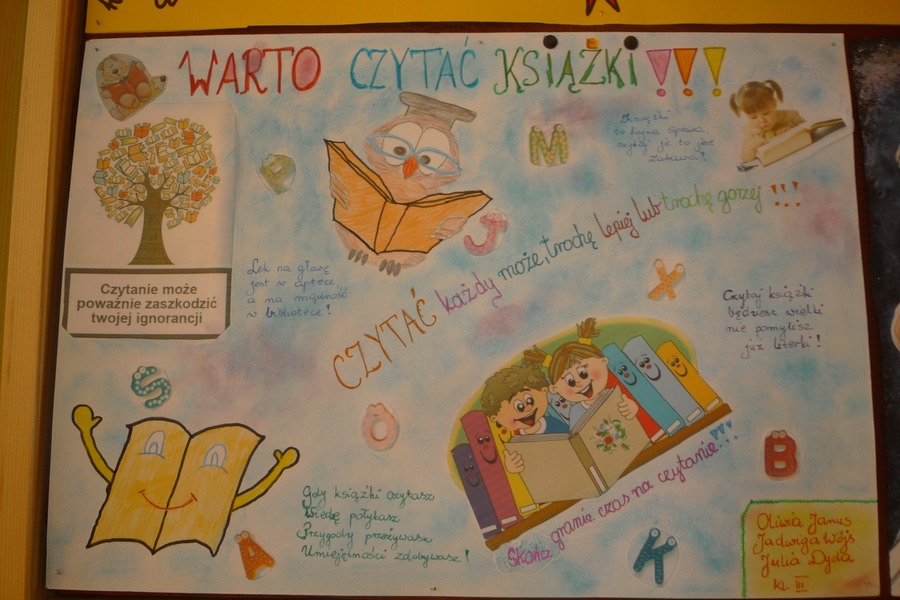 WARTO CZYTAĆ KSIĄŻKI!!!
Książki
to fajna sprawa,
czytaj je to jest
zabawa!
P
M
J
CZYTAĆ każdy może, trochę lepiej lub trochę gorzej!!!
Czytanie może
poważnie zaszkodzić
twojej ignorancji
Lek na głowę
jest w aptece,
a na mądrość
w bibliotece!
X
Czytaj książki
będziesz wielki
nie pomylisz
już literki!
S
O
B
Gdy książki czytasz
Wiedzę połykasz
Przygody przeżywasz
Umiejętności zdobywasz!
Skończ granie czas na czytanie!!!
A
K
Oliwia Janus
Jadwiga Wójs
Julia Dyda
kl. III